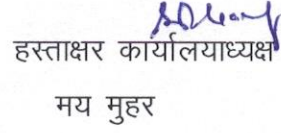 हस्ताक्षर कार्यालयाध्यक्ष
मय मुहर